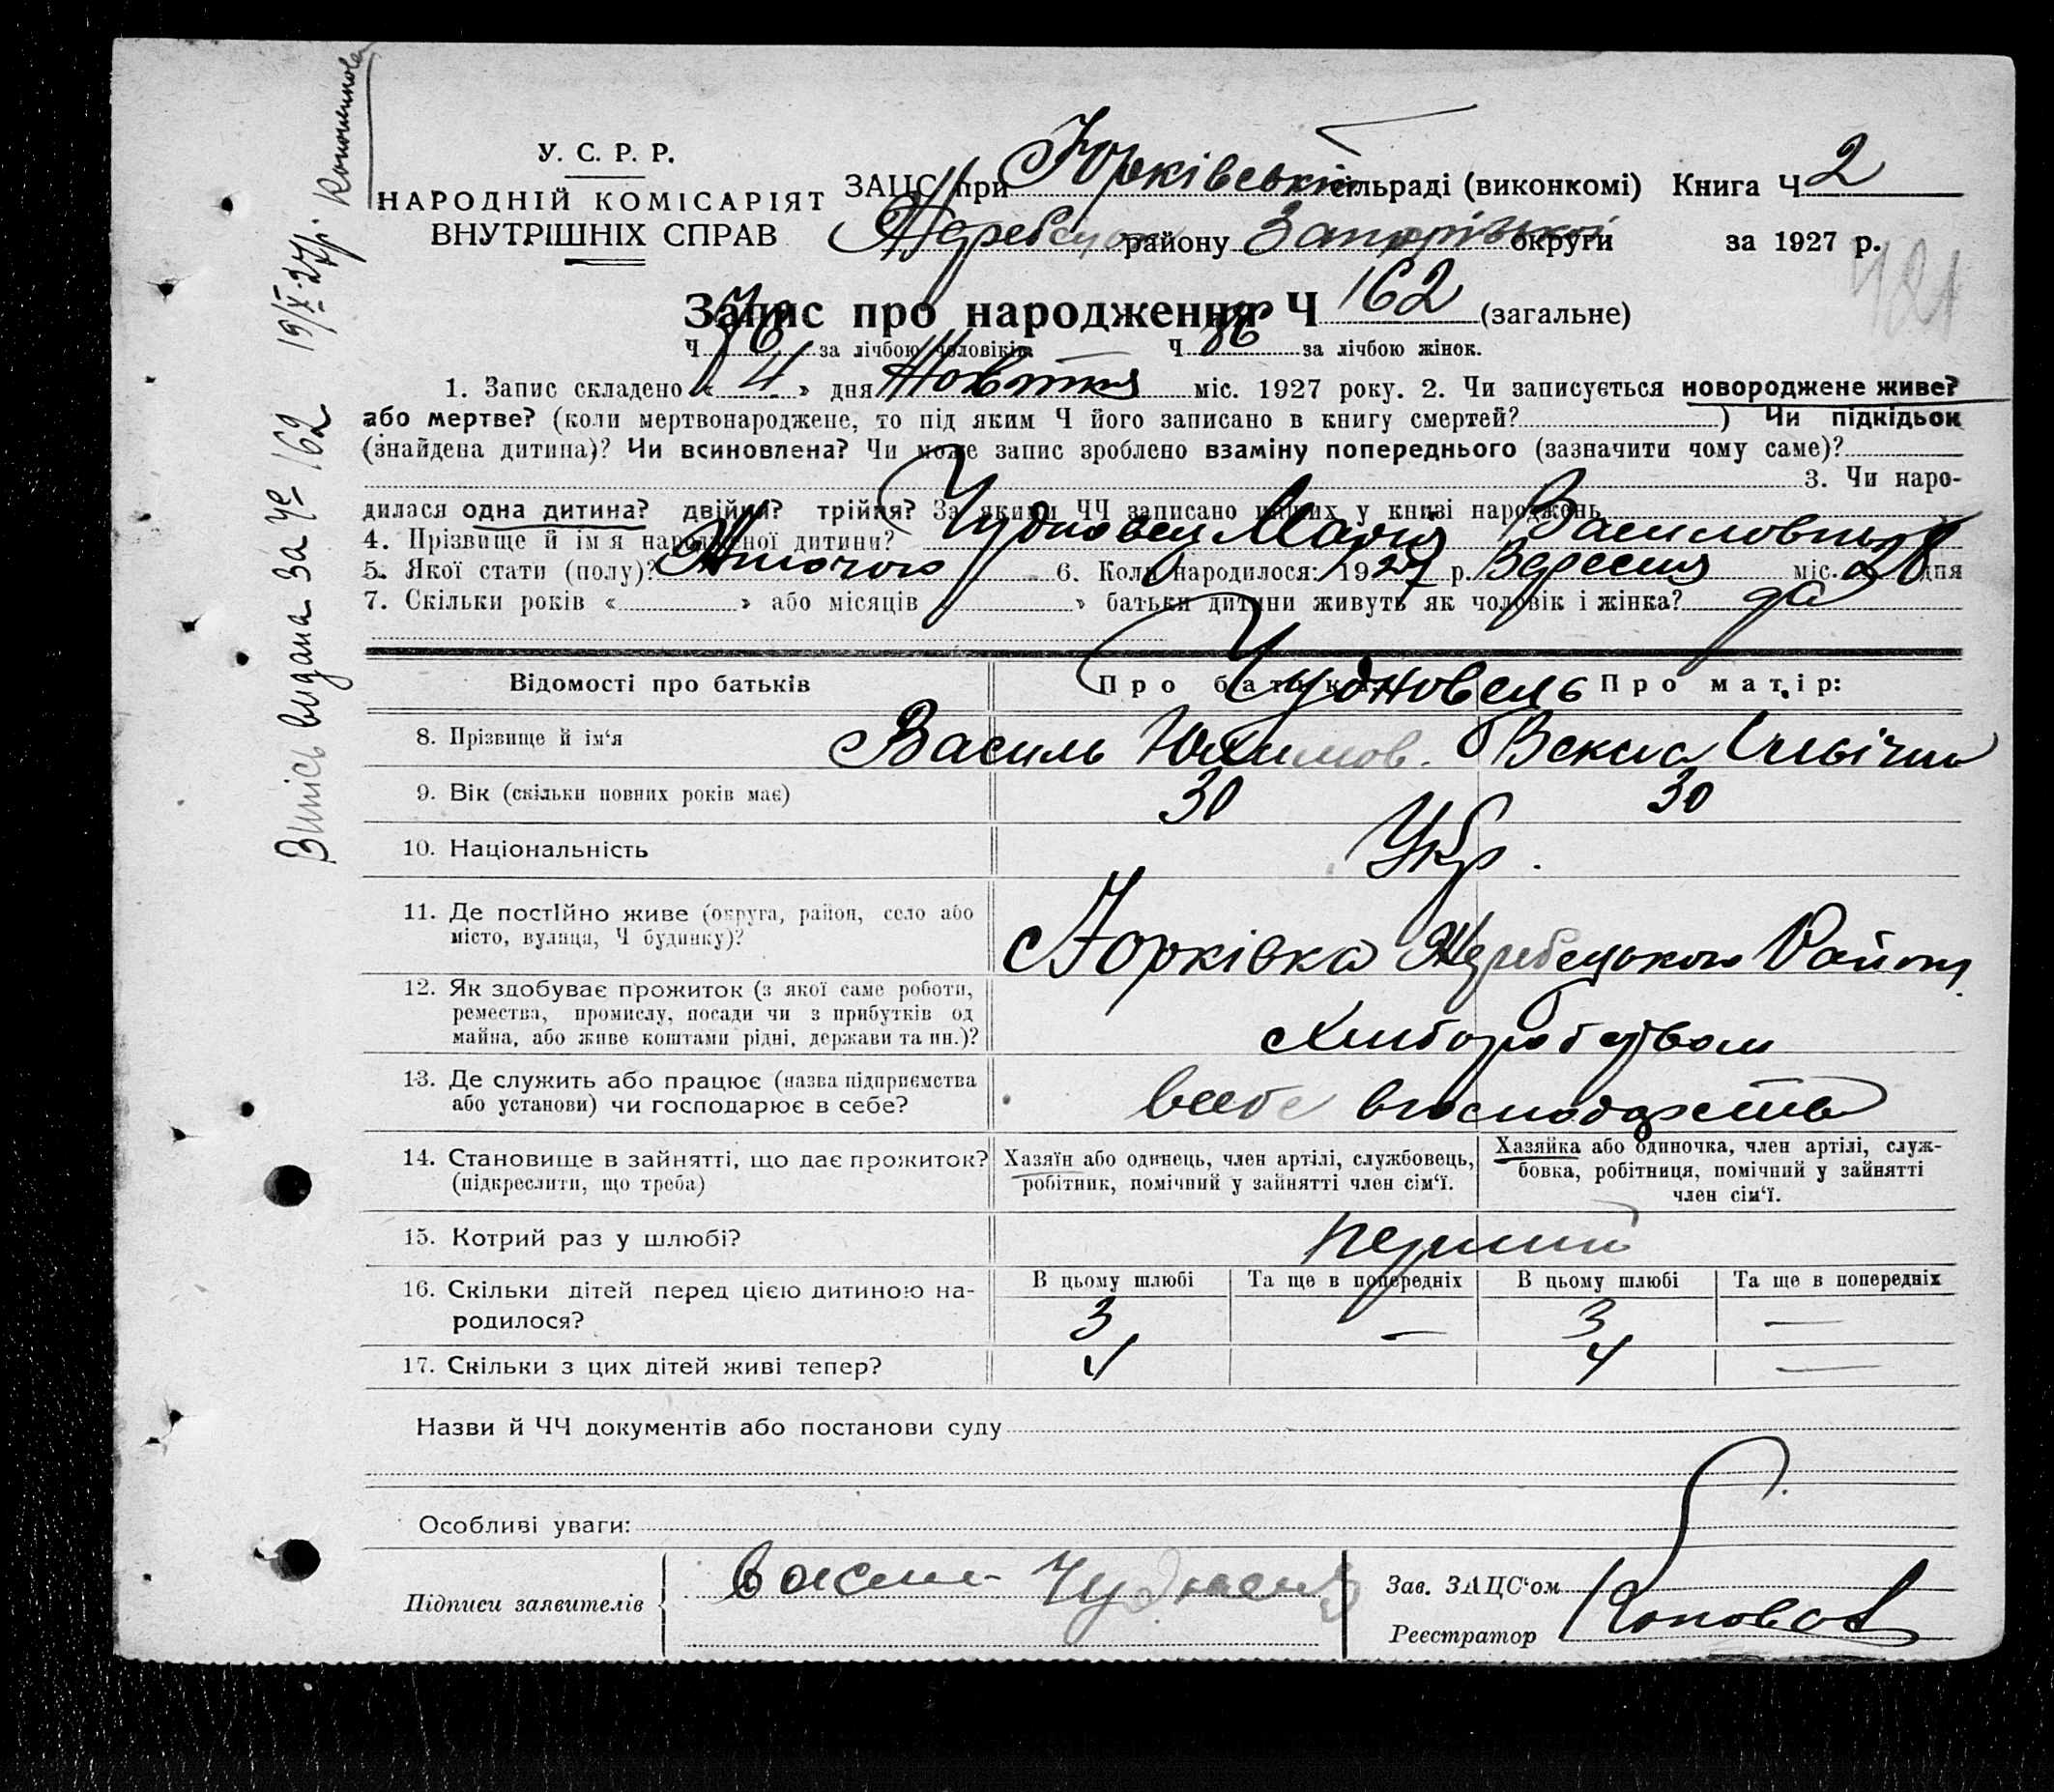 У. С. Р. Р.
НАРОДНІЙ КОМІСАРІЯТ
ВНУТРІШНІХ СПРАВ
ЗАЦС при Юрківській сільраді (виконкомі) Книга Ч 2
району Запорізької округи за 1927 р.
421
Запис про народження Ч 162 (загальне)
Ч 76 за лічбою чоловіків Ч 86 за лічбою жінок.
1. Запис складено « 4 » дня Жовтня міс. 1927 року. 2. Чи записується новороджене живе?
або мертве? (коли мертвонароджене, то під яким Ч його записано в книгу смертей? ) Чи підкідьок
(знайдена дитина)? Чи всиновлена? Чи може запис зроблено взаміну попереднього (зазначити чому саме)?
3. Чи наро-
дилася одна дитина? двійня? трійня? За якими ЧЧ записано инших у книзі народжень
4. Прізвище й ім'я народженої дитини? Чудновець Марія Василовна
5. Якої стати (полу)? Жіночого 6. Коли народилося: 1927 р. Вересня міс. 28 дня
7. Скільки років « » або місяців « » батьки дитини живуть як чоловік і жінка? да
Відомості про батьків Про батька: Про матір:
Чудновець
8. Прізвище й ім'я Василь Юхимов. Векла Іллівічна
9. Вік (скільки повних років має) 30 30
10. Національність Укр.
11. Де постійно живе (округа, район, село або
місто, вулиця, Ч будинку)?
с Юрківка Жеребецького Району
12. Як здобуває прожиток (з якої саме роботи,
ремества, промислу, посади чи з прибутків од
майна, або живе коштами рідні, держави та ин.)?
хліборобством
13. Де служить або працює (назва підприємства
або установи) чи господарює в себе?
всебе вгосподарстві
14. Становище в зайнятті, що дає прожиток?
(підкреслити, що треба)
Хазяїн або одинець, член артілі, службовець,
робітник, помічний у зайнятті член сім'ї.
Хазяйка або одиночка, член артілі, служ-
бовка, робітниця, помічний у зайнятті
член сім'ї.
15. Котрий раз у шлюбі? перший
16. Скільки дітей перед цією дитиною на-
родилося?
В цьому шлюбі Та ще в попередніх В цьому шлюбі Та ще в попередніх
3 — 3 —
17. Скільки з цих дітей живі тепер? 4 4 —
Назви й ЧЧ документів або постанови суду
Особливі уваги:
Підписи заявителів
Зав. ЗАЦС'ом
Реєстратор
Випись видана за № 162 19/X-27р.